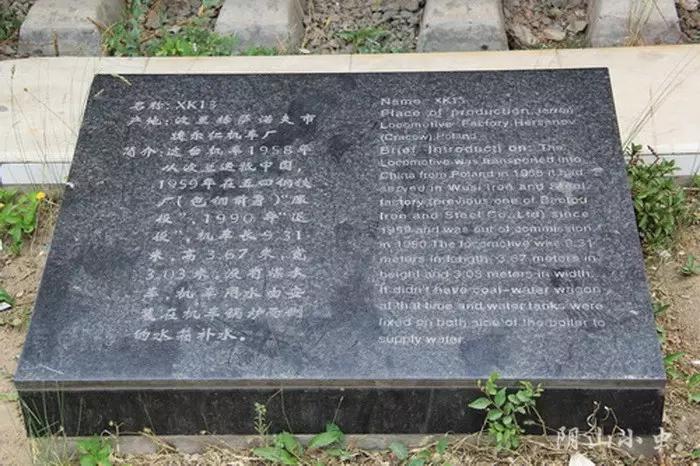 名称: XK13
产地: 波兰赫萨诺夫市
机车厂
简介: 这台机车1958年
从波兰运抵中国,
1959年在五四钢铁
厂(包钢前身)"服
役", 1990年"退
役", 机车长9.31
米, 高3.67米, 宽
3.03米, 没有煤水
车, 机车用水由安
装在机车锅炉两侧
的水箱补水。
Name: XK13
Place of production:
Locomotive Factory, Hersanov
(Cracow), Poland
Brief Introduction: The
Locomotive was transported into
China from Poland in 1958 it had
served in Wusi Iron and Steel
factory (previous one of Baotou
Iron and Steel Co., Ltd) since
1959 and was out of commission
in 1990. The locomotive was 9.31
meters in length, 3.67 meters in
height and 3.03 meters in width.
It didn't have coal-water wagon
at that time and water tanks were
fixed on both side of the boiler to
supply water.
阴山小虫